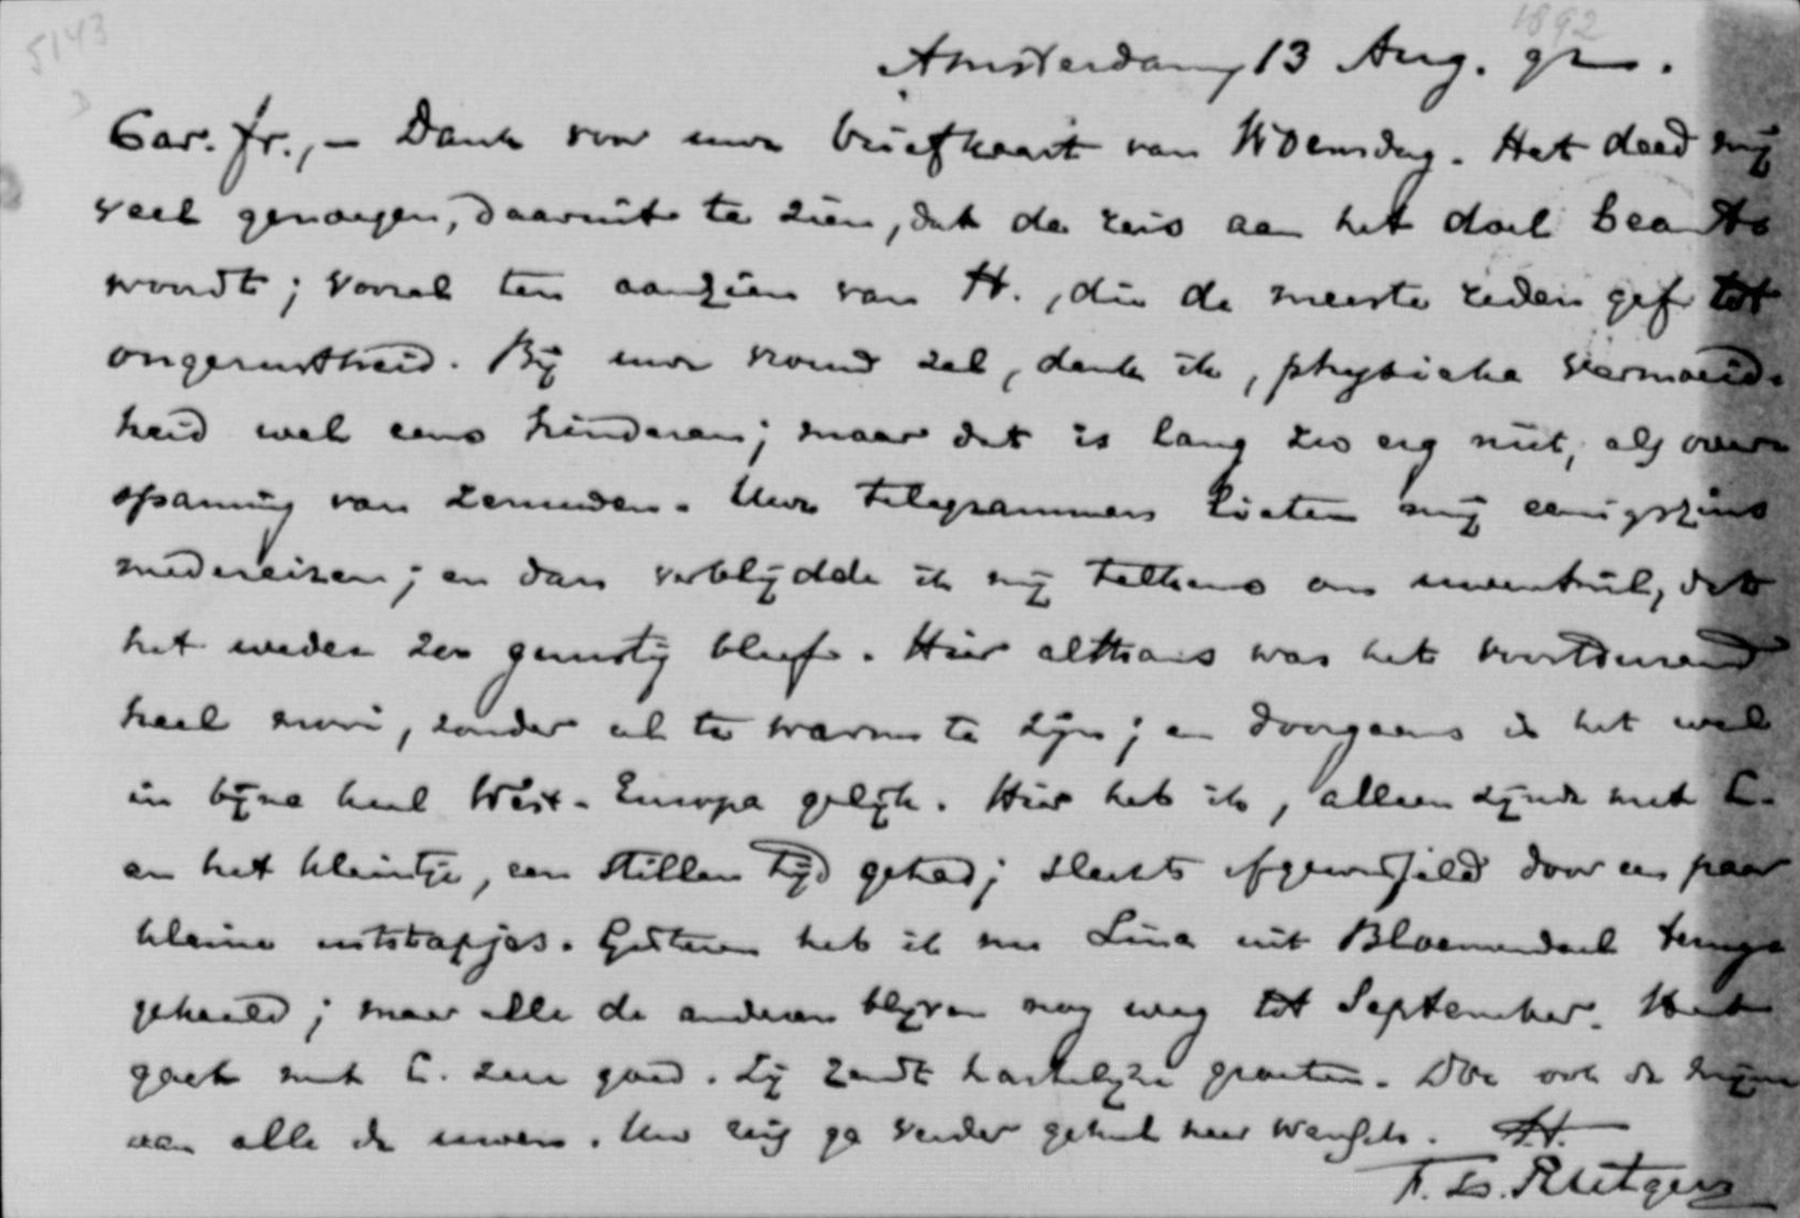 5143
1892
Amsterdam, 13 Aug. 92.
Car. fr., – Dank voor uwe briefkaart van Woensdag. Het deed mij
veel genoegen, daaruit te zien, dat de reis aan het doel beant-
woordt; vooral ten aanzien van H., die de meeste reden gaf tot
ongerustheid. Bij uwe zal, denk ik, physieke vermoeid-
heid wel eens hinderen; maar dat is lang zoo erg niet, als over-
spanning van zenuwen. Uwe telegrammen lieten mij eenigszins
medereizen; en dan verblijdde ik mij telkens om uwentwil, dat
het weder zoo gunstig bleef. Hier althans was het voortdurend
heel mooi, zonder al te warm te zijn; en doorgaans is het wel
in bijna heel West-Europa gelijk. Hier heb ik, alleen zijnde met C.
en het kleintje, een stillen tijd gehad; slechts afgewisseld door een paar
kleine uitstapjes. Gisteren heb ik nu Lina uit Bloemendaal terug
gehaald; maar alle de anderen blijven nog weg tot September. Het
gaat met C. zeer goed. Zij zendt hartelijke groeten. Doe ook de mijne
aan alle de uwen. Uw reis ga verder geheel naar wensch. tt.
F. L. Rutgers